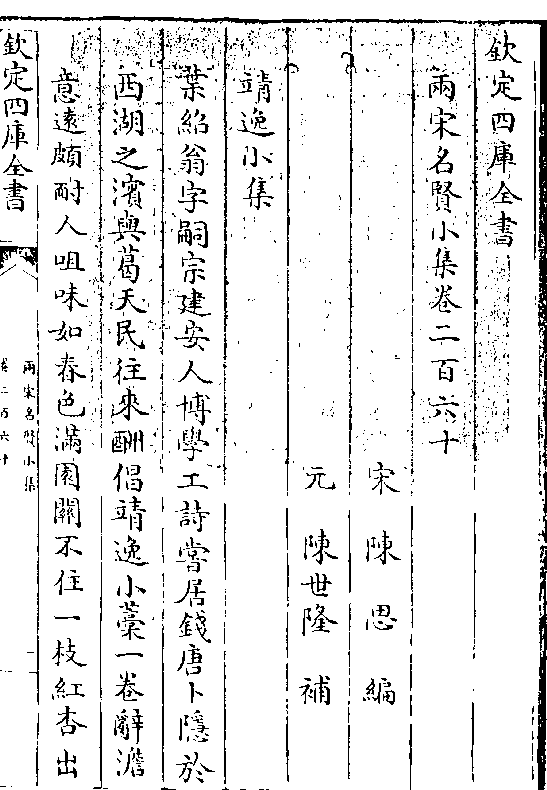 欽定四庫全書
兩宋名賢小集卷二百六十
宋 陳思 編
元 陳世隆 補
靖逸小集
葉紹翁字嗣宗建安人博學工詩嘗居錢唐卜隱於
西湖之濱與葛天民往來酬倡靖逸小藁一卷辭澹
意遠頗耐人咀味如春色滿園關不住一枝紅杏出
欽定四庫全書
兩宋名賢小集
卷二百六十
一